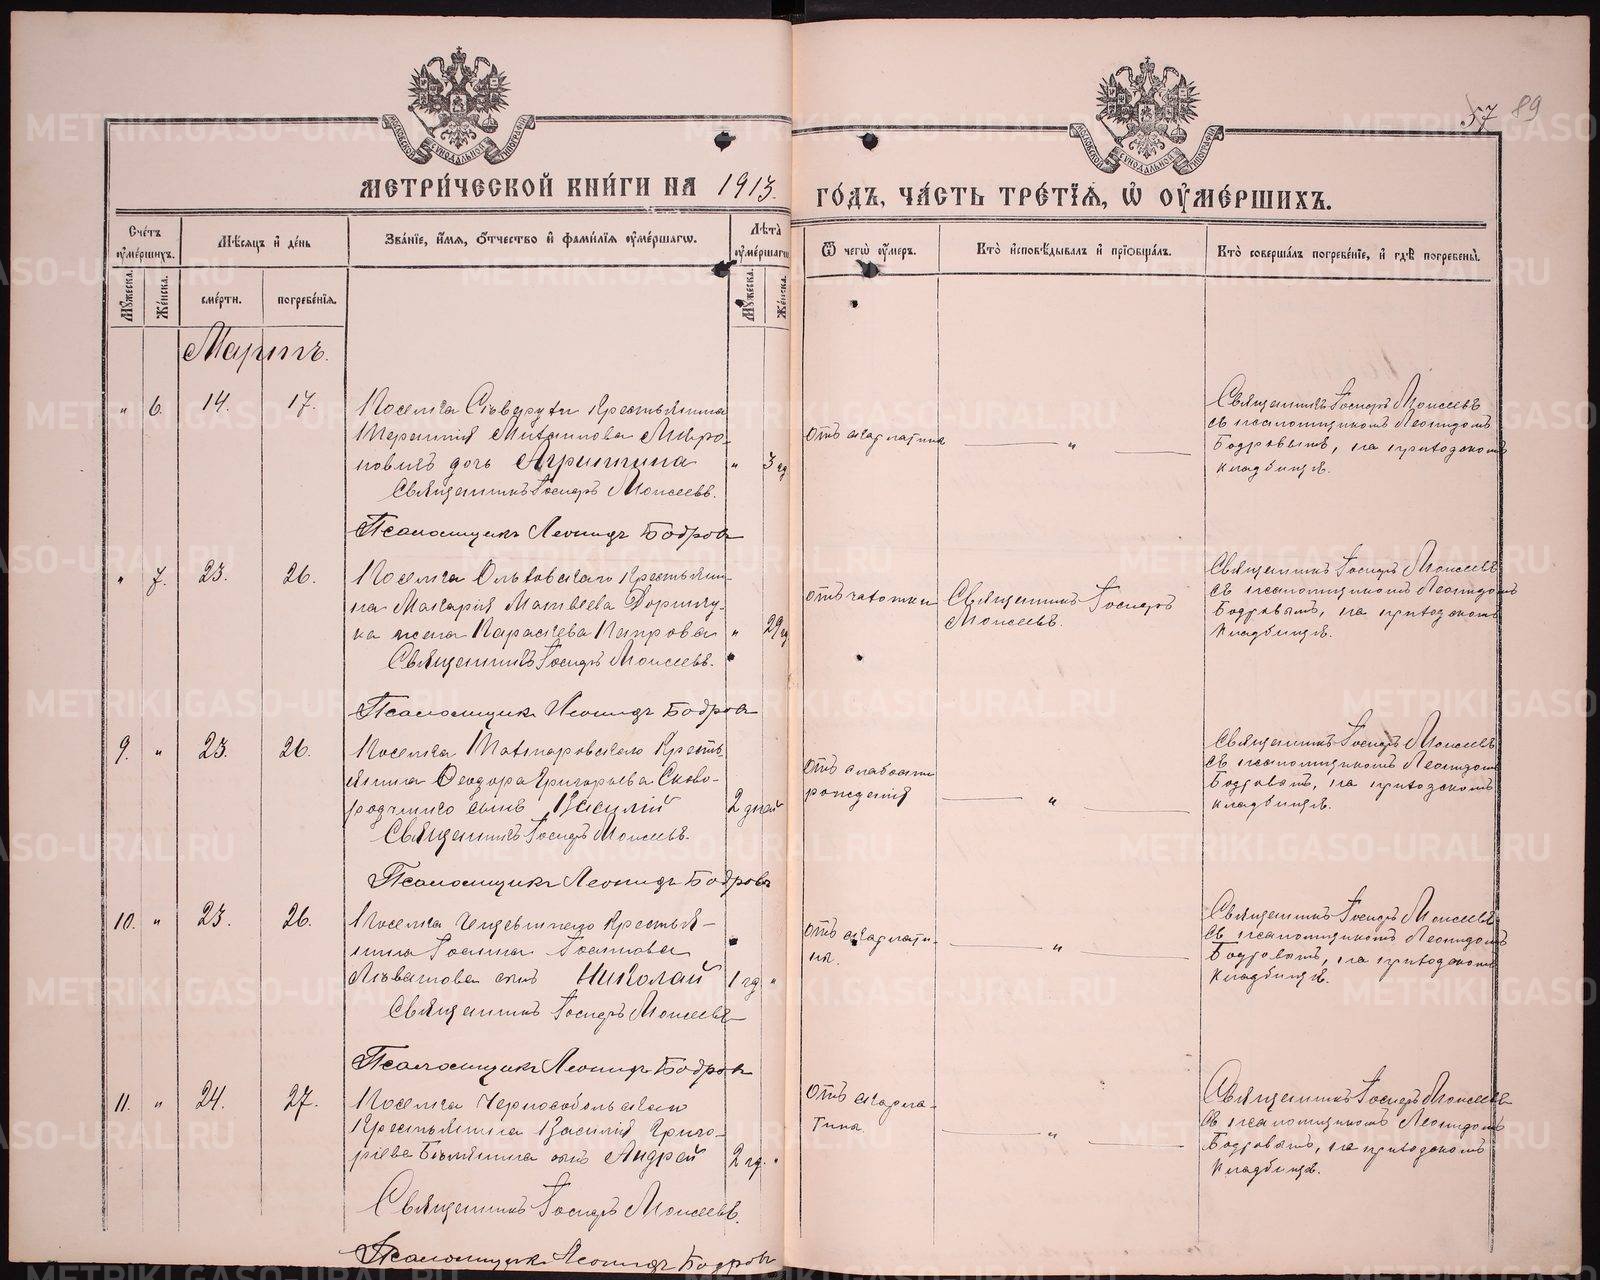 57 89
МОСКОВСКОЙ СѴНОДАЛЬНОЙ ТИПОГРАФІИ
МОСКОВСКОЙ СѴНОДАЛЬНОЙ ТИПОГРАФІИ
МЕТРИ́ЧЕСКОЙ КНИ́ГИ НА 1913. ГО́ДЪ, ЧА́СТЬ ТРЕ́ТІѦ, Ѡ ОУМЕ́РШИХЪ.
Сче́тъ оуме́ршихъ.
Мѣ́сѧцъ и҆ де́нь
Зва́нїе, и҆́мѧ, ѻ҆́тчество и҆ фами́лїѧ оуме́ршагѡ.
Лѣ́та оуме́ршагѡ
Ѿ чегѡ̀ оу҆́меръ.
Кто̀ и҆сповѣ́дывалъ и҆ прїѡбща́лъ.
Кто̀ соверша́лъ погребе́нїе, и҆ гдѣ̀ погребены̀.
Мꙋ́жеска.
Же́нска.
сме́рти.
погребе́нїѧ.
Мꙋ́жеска.
Же́нска.
Мартъ.
" 6. 14. 17.
Поселка Сѣверути Крестьянина
Терентія Миро-
новичъ дочь Агриппина " 3 гд
Священникъ Іосифъ Моисеевъ.
Псаломщикъ Леонидъ Бодровъ
отъ скарлатины
"
Священникъ Іосифъ Моисеевъ
съ псаломщикомъ Леонидомъ
Бодровымъ, на приходскомъ
кладбищѣ.
" 7. 23. 26.
Поселка Ольховскаго Крестьяни-
на Макарія Матвеева
жена Параскева " 29 гд
Священникъ Іосифъ Моисеевъ.
Псаломщикъ Леонидъ Бодровъ
отъ чахотки
Священникъ Іосифъ
Моисеевъ.
Священникъ Іосифъ Моисеевъ
съ псаломщикомъ Леонидомъ
Бодровымъ, на приходскомъ
кладбищѣ.
9. " 23. 26.
Поселка Кресть-
янина Ѳеодора Григорьева Сково-
родчинсынъ Василій 2 дней
Священникъ Іосифъ Моисеевъ.
Псаломщикъ Леонидъ Бодровъ
отъ слабости
рожденія
"
Священникъ Іосифъ Моисеевъ
съ псаломщикомъ Леонидомъ
Бодровымъ, на приходскомъ
кладбищѣ.
10. " 23. 26.
Поселка Крестья-
нина
сынъ Николай 1 гд. "
Священникъ Іосифъ Моисеевъ
Псаломщикъ Леонидъ Бодровъ
отъ скарлати-
ны.
"
Священникъ Іосифъ Моисеевъ
съ псаломщикомъ Леонидомъ
Бодровымъ, на приходскомъ
кладбищѣ.
11. " 24. 27.
Поселка Чернособольскаго
Крестьянина Василія Григо-
ріева сынъ Андрей 2 гд. "
Священникъ Іосифъ Моисеевъ.
Псаломщикъ Леонидъ Бодровъ
отъ скарла-
тины.
"
Священникъ Іосифъ Моисеевъ
съ псаломщикомъ Леонидомъ
Бодровымъ, на приходскомъ
кладбищѣ.
METRIKI.GASO-URAL.RU